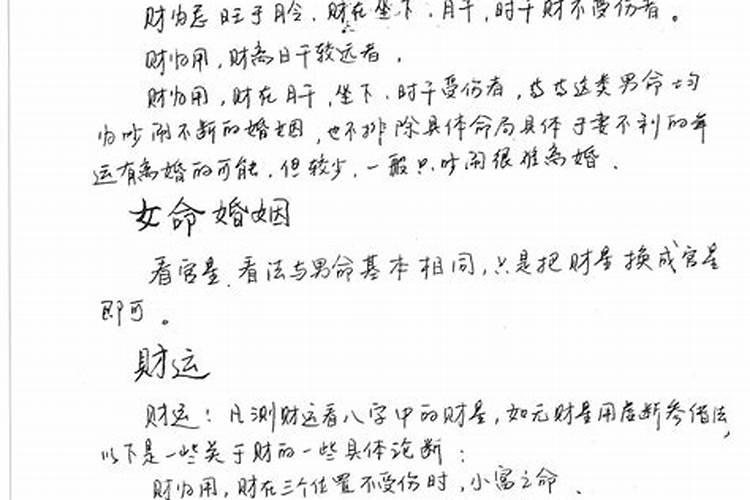 财为忌旺于月令，财在坐下，月干，时干财不受伤者。
财为用，财离日干较远者，
财为用，财在月干，坐下，时干受伤者，等等这类男命均
为吵闹不断的婚姻，也不排除具体命局具体于妻不利的年
运有离婚的可能，但较少，一般只吵闹很难离婚．
女命婚姻
看官星，看法与男命基本相同，只是把财星换成官星
即可。
财运
财运：凡测财运看八字中的财星，如无财星用虚断参借法，
以下是一些关于财的一些具体论断：
财为用，财在三个位置不受伤时，小富之命．